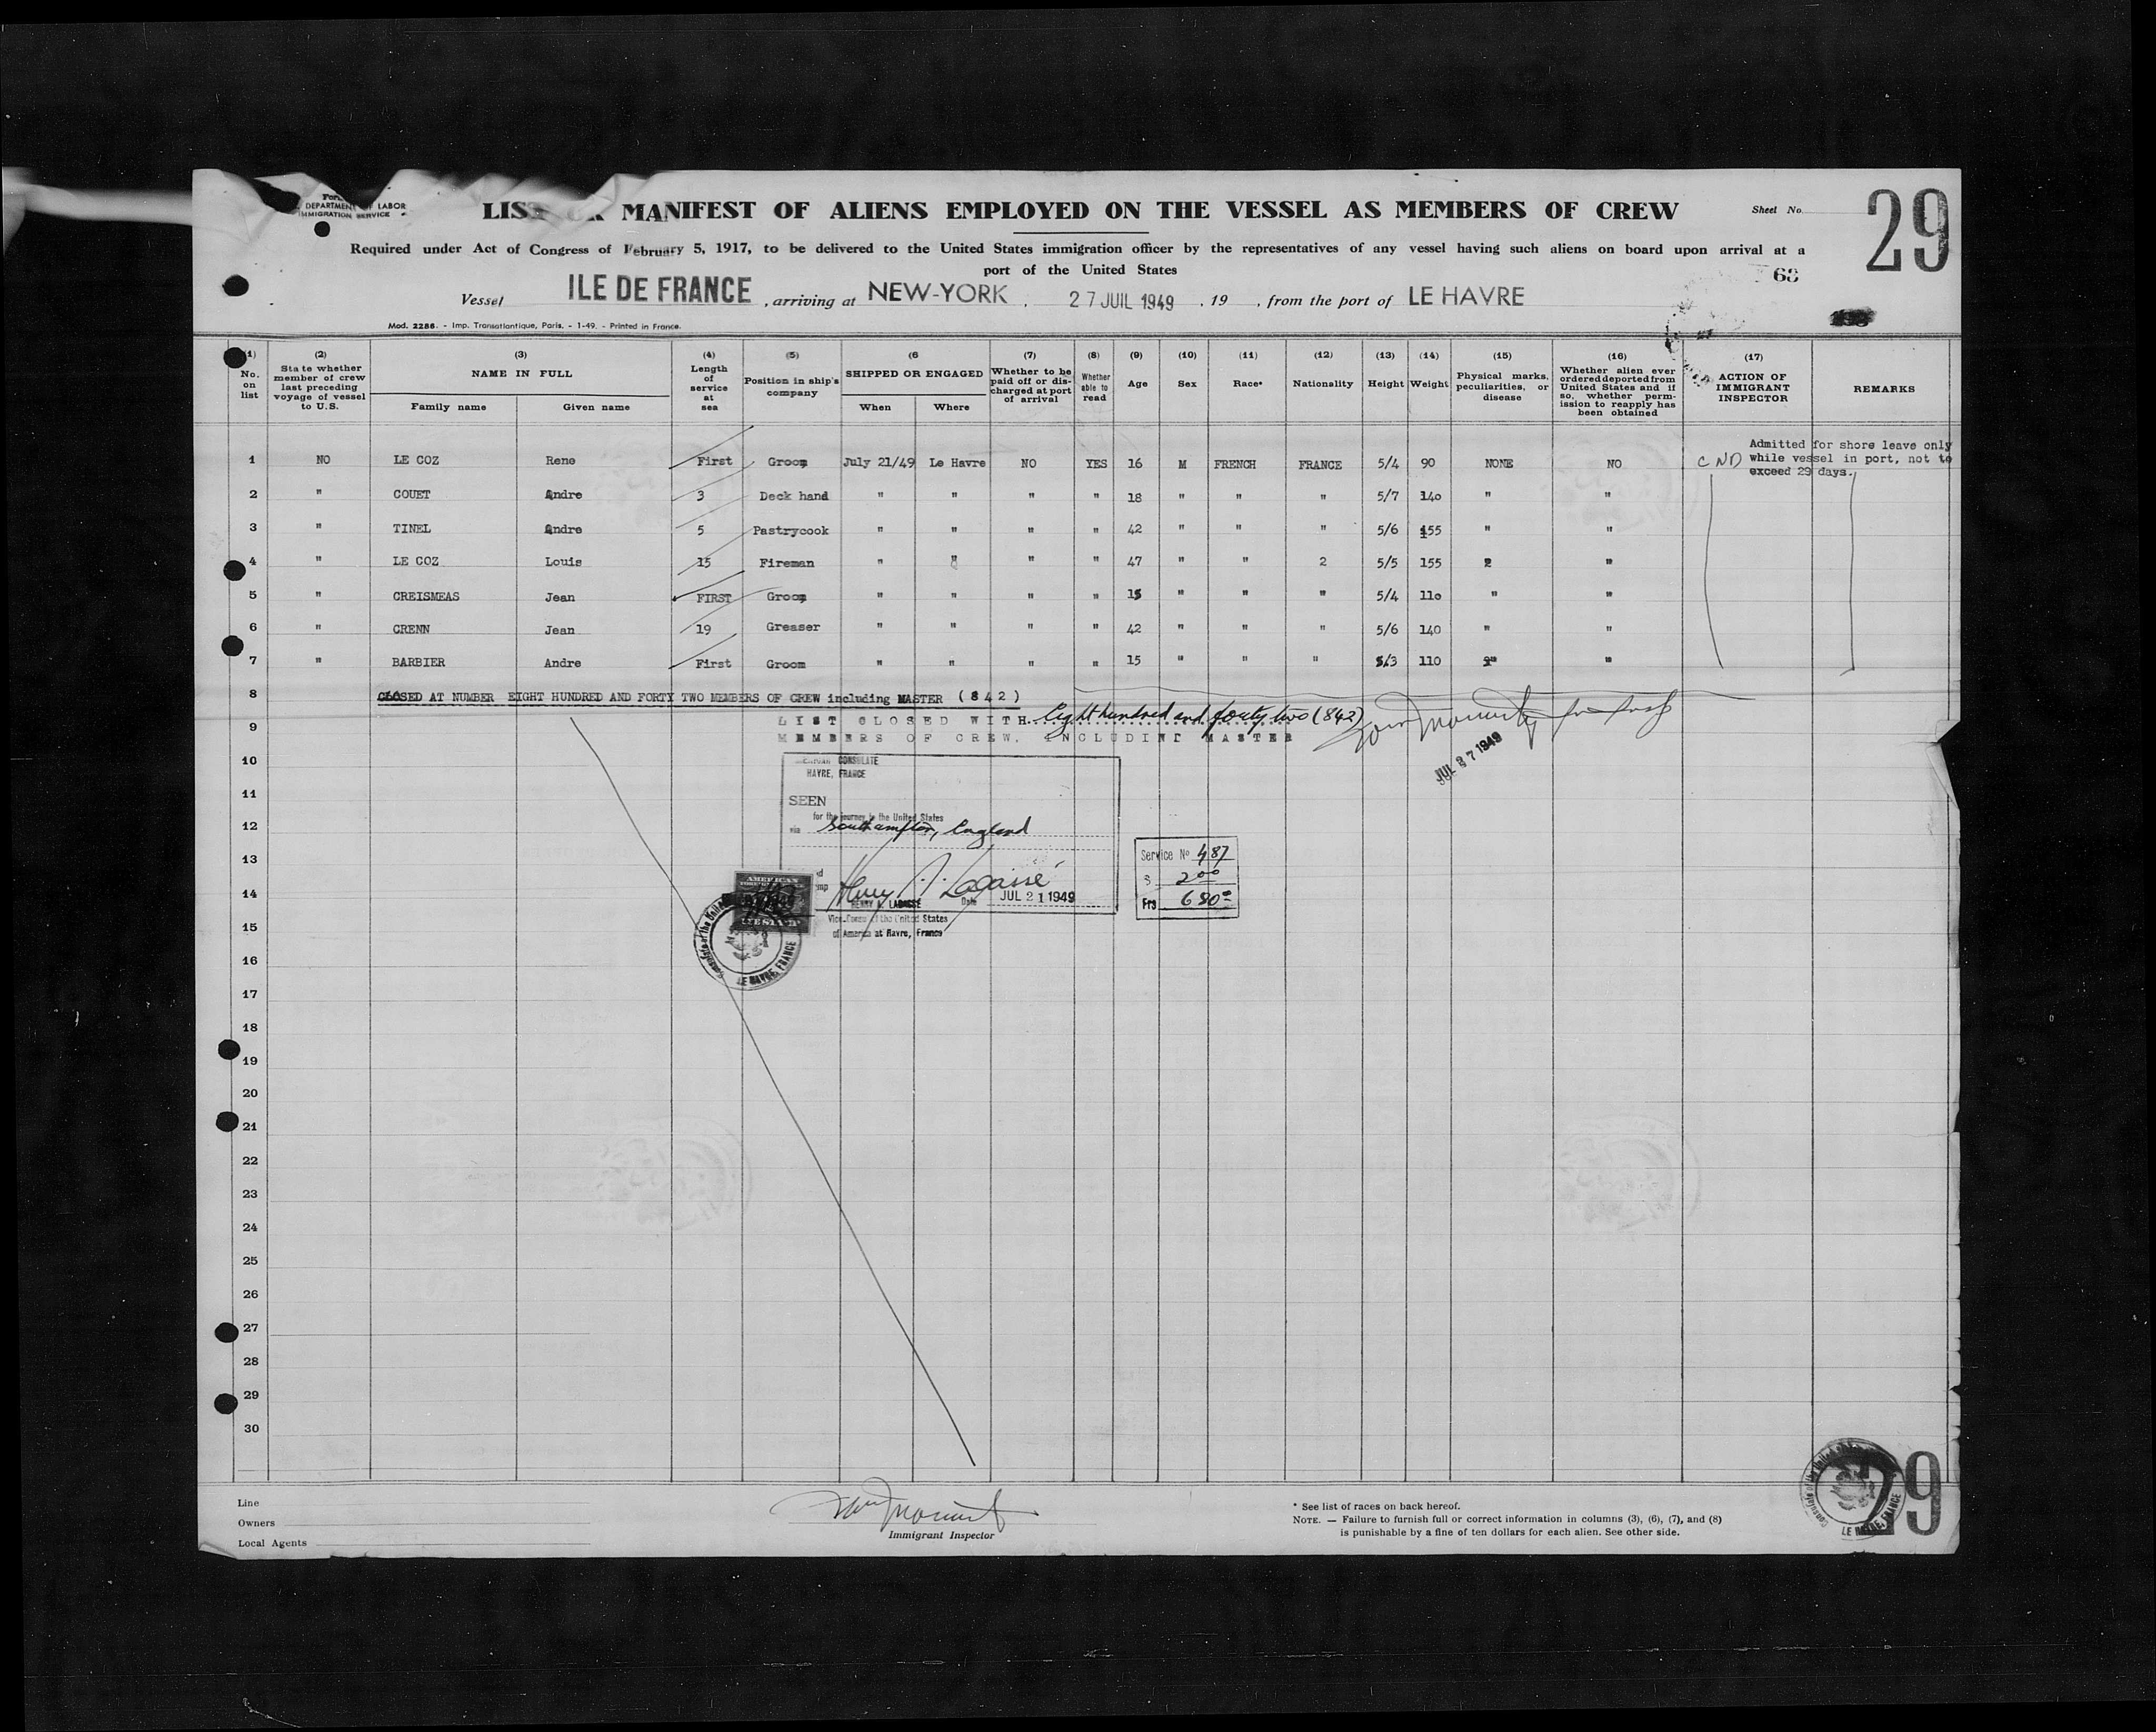 DEPARTMENT OF LABOR
IMMIGRATION SERVICE
MANIFEST OF ALIENS EMPLOYED ON THE VESSEL AS MEMBERS OF CREW
Sheet No.
29
Required under Act of Congress of February 5, 1917, to be delivered to the United States immigration officer by the representatives of any vessel having such aliens on board upon arrival at a
port of the United States
68
Vessel ILE DE FRANCE, arriving at NEW-YORK, 27 JUIL 1949, 19 , from the port of LE HAVRE
Mod. 2288. - Imp. Transatlantique, Paris. - 1-49. - Printed in France.
(1) No. on list
(2) State whether member of crew last preceding voyage of vessel to U.S.
(3) NAME IN FULL
Family name Given name
(4) Length of service at sea
(5) Position in ship's company
(6 SHIPPED OR ENGAGED
When Where
(7) Whether to be paid off or discharged at port of arrival
(8) Whether able to read
(9) Age
(10) Sex
(11) Race*
(12) Nationality
(13) Height
(14) Weight
(15) Physical marks, peculiarities, or disease
(16) Whether alien ever ordered deported from United States and if so, whether permission to reapply has been obtained
(17) ACTION OF IMMIGRANT INSPECTOR
REMARKS
1 NO LE COZ Rene First Groom July 21/49 Le Havre NO YES 16 M FRENCH FRANCE 5/4 90 NONE NO CND
Admitted for shore leave only
while vessel in port, not to
exceed 29 days.
2 " COUET Andre 3 Deck hand " " " " 18 " " " 5/7 140 " "
3 " TINEL Andre 5 Pastrycook " " " " 42 " " " 5/6 155 " "
4 " LE COZ Louis 15 Fireman " " " " 47 " " 2 5/5 155 2 "
5 " CREISMEAS Jean FIRST Groom " " " " 15 " " " 5/4 110 " "
6 " CRENN Jean 19 Greaser " " " " 42 " " " 5/6 140 " "
7 " BARBIER Andre First Groom " " " " 15 " " " 5/3 110 " "
8 CLOSED AT NUMBER EIGHT HUNDRED AND FORTY TWO MEMBERS OF CREW including MASTER (842)
9 LIST CLOSED WITH Eight hundred and forty two (842)
MEMBERS OF CREW. INCLUDING MASTER
JUL 27 1949
10
CONSULATE
HAVRE, FRANCE
11
SEEN
for the journey to the United States
12
via Southampton, England
13
14
Henry A. Lagasse
HENRY A. LAGASSE
Date JUL 21 1949
Vice-Consul of the United States
of America at Havre, France
Service No 487
$ 2.00
Frs 680=
AMERICAN
Consulate of the United
LE HAVRE, FRANCE
15
16
17
18
19
20
21
22
23
24
25
26
27
28
29
30
Line
Owners
Local Agents
Immigrant Inspector
* See list of races on back hereof.
NOTE. — Failure to furnish full or correct information in columns (3), (6), (7), and (8)
is punishable by a fine of ten dollars for each alien. See other side.
LE HAVRE, FRANCE
29